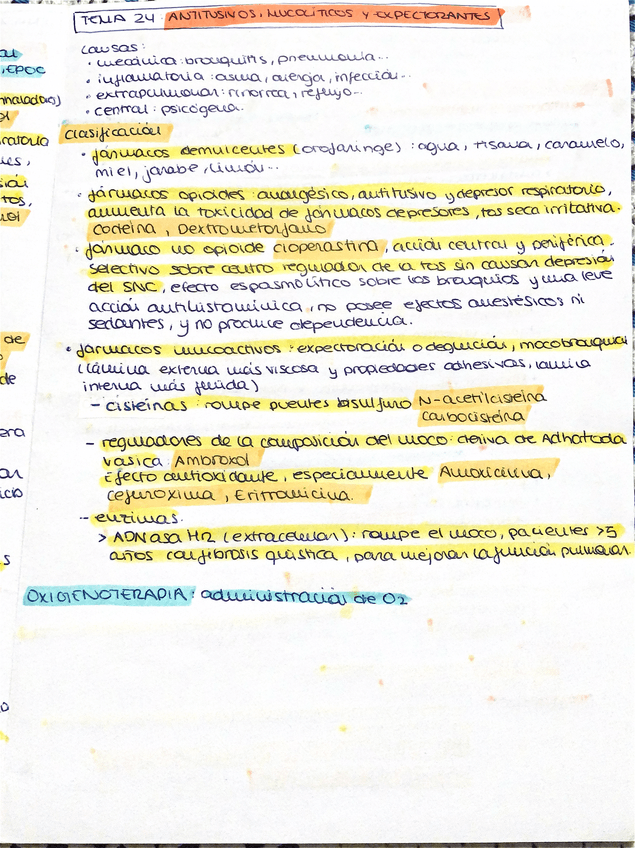 TEMA 24: ANTITUSIVOS, MUCOLÍTICOS Y EXPECTORANTES
causas:
· mecánica: bronquitis, pneumonía...
· inflamatoria: asma, alergia, infección...
· extrapulmonar: rinorrea, reflujo...
· central: psicógena.
Clasificación
· fármacos demulcentes (orofaringe): agua, tisana, caramelo,
miel, jarabe, limón...
· fármacos opioides: analgésico, antitusivo y depresor respiratorio,
aumenta la toxicidad de fármacos depresores, tos seca irritativa.
Codeína, Dextrometorfano
· fármaco no opioide cloperastina, acción central y periférica.
Selectivo sobre centro regulador de la tos sin causar depresión
del SNC, efecto espasmolítico sobre los bronquios y una leve
acción antihistamínica, no posee efectos anestésicos ni
sedantes, y no produce dependencia.
· fármacos mucoactivos: expectoración o deglución, moco bronquial
(lámina externa más viscosa y propiedades adhesivas, lámina
interna más fluida)
- cisteínas: rompe puentes bisulfuro N-acetilcisteína
Carbocisteína
- reguladores de la composición del moco: deriva de Adhatoda
vasica: Ambroxol
Efecto antioxidante, especialmente Amoxicilina,
cefuroxima, Eritromicina.
- enzimas.
> ADNasa H2 (extracelular): rompe el moco, pacientes >5
años con fibrosis quística, para mejorar la función pulmonar.
OXIGENOTERAPIA: administración de O2